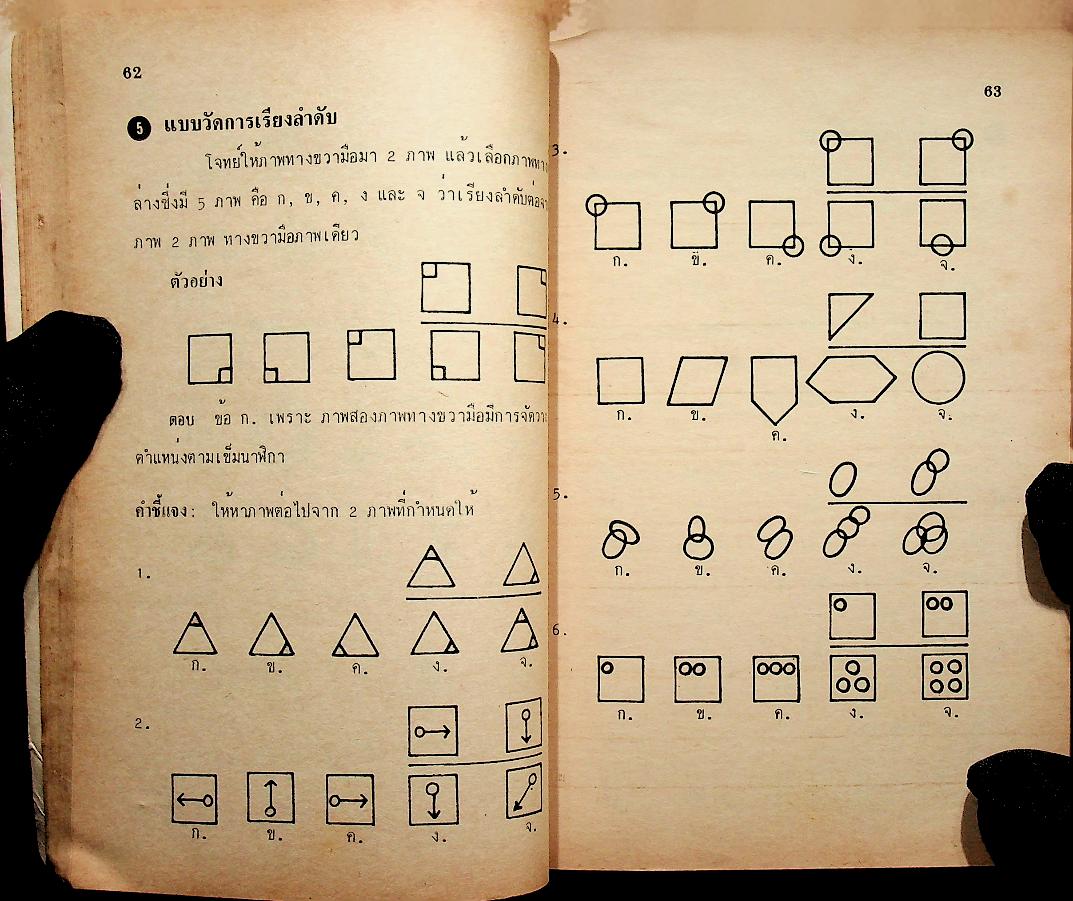 62
5 แบบวัดการเรียงลำดับ
โจทย์ให้ภาพทางขวามือมา 2 ภาพ แล้วเลือกภาพทาง
ล่างซึ่งมี 5 ภาพ คือ ก, ข, ค, ง และ จ ว่าเรียงลำดับต่อจาก
ภาพ 2 ภาพ ทางขวามือภาพเดียว
ตัวอย่าง
ตอบ ข้อ ก. เพราะ ภาพสองภาพทางขวามือมีการจัดวาง
ตำแหน่งตามเข็มนาฬิกา
คำชี้แจง: ให้หาภาพต่อไปจาก 2 ภาพที่กำหนดให้
1.
ก. ข. ค. ง. จ.
2.
ก. ข. ค. ง. จ.
63
3.
ก. ข. ค. ง. จ.
4.
ก. ข. ค. ง. จ.
5.
ก. ข. ค. ง. จ.
6.
ก. ข. ค. ง. จ.